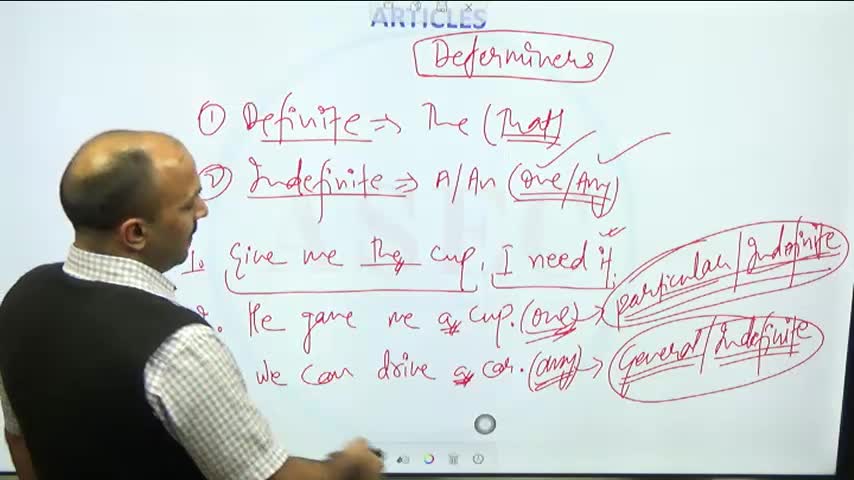 ARTICLES
Determiners
① Definite ⇒ The (That)
② Indefinite ⇒ A/An (One/Any)
1. Give me the cup, I need it.
2. He gave me a cup. (one) → Particular/Indefinite
We can drive a car. (any) → General/Indefinite